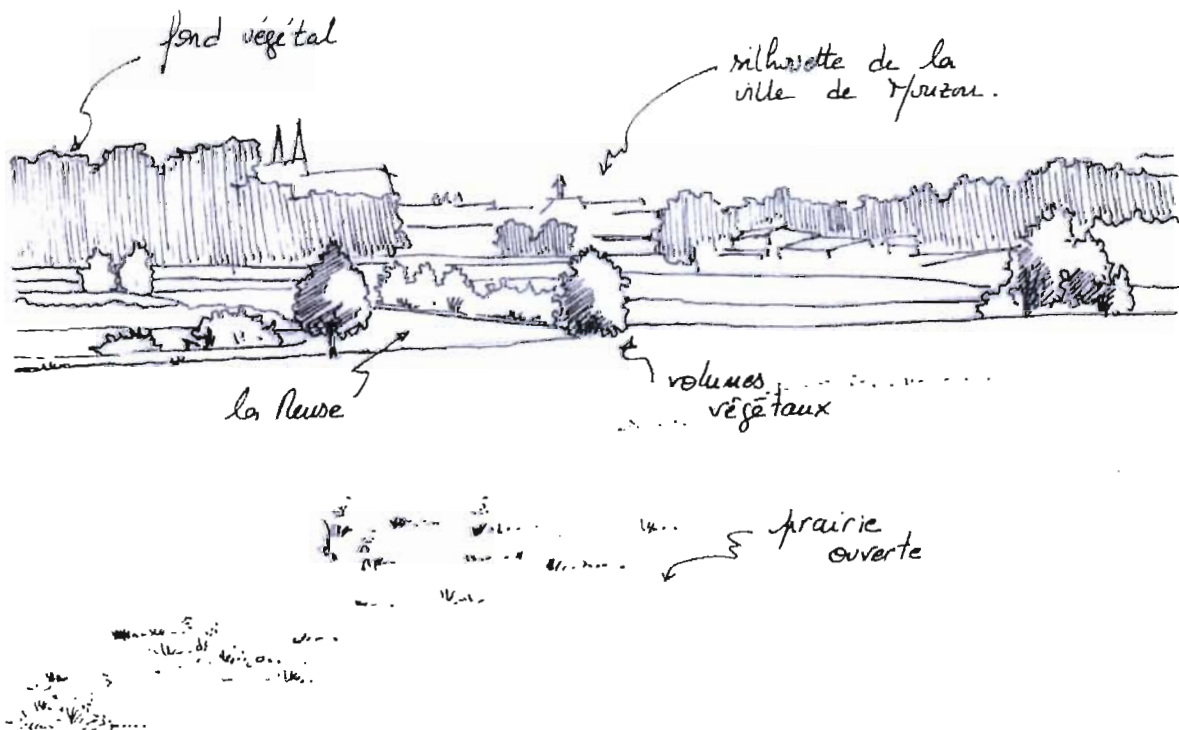 fond végétal
silhouette de la
ville de Mouzon.
la Meuse
volumes
végétaux
prairie
ouverte